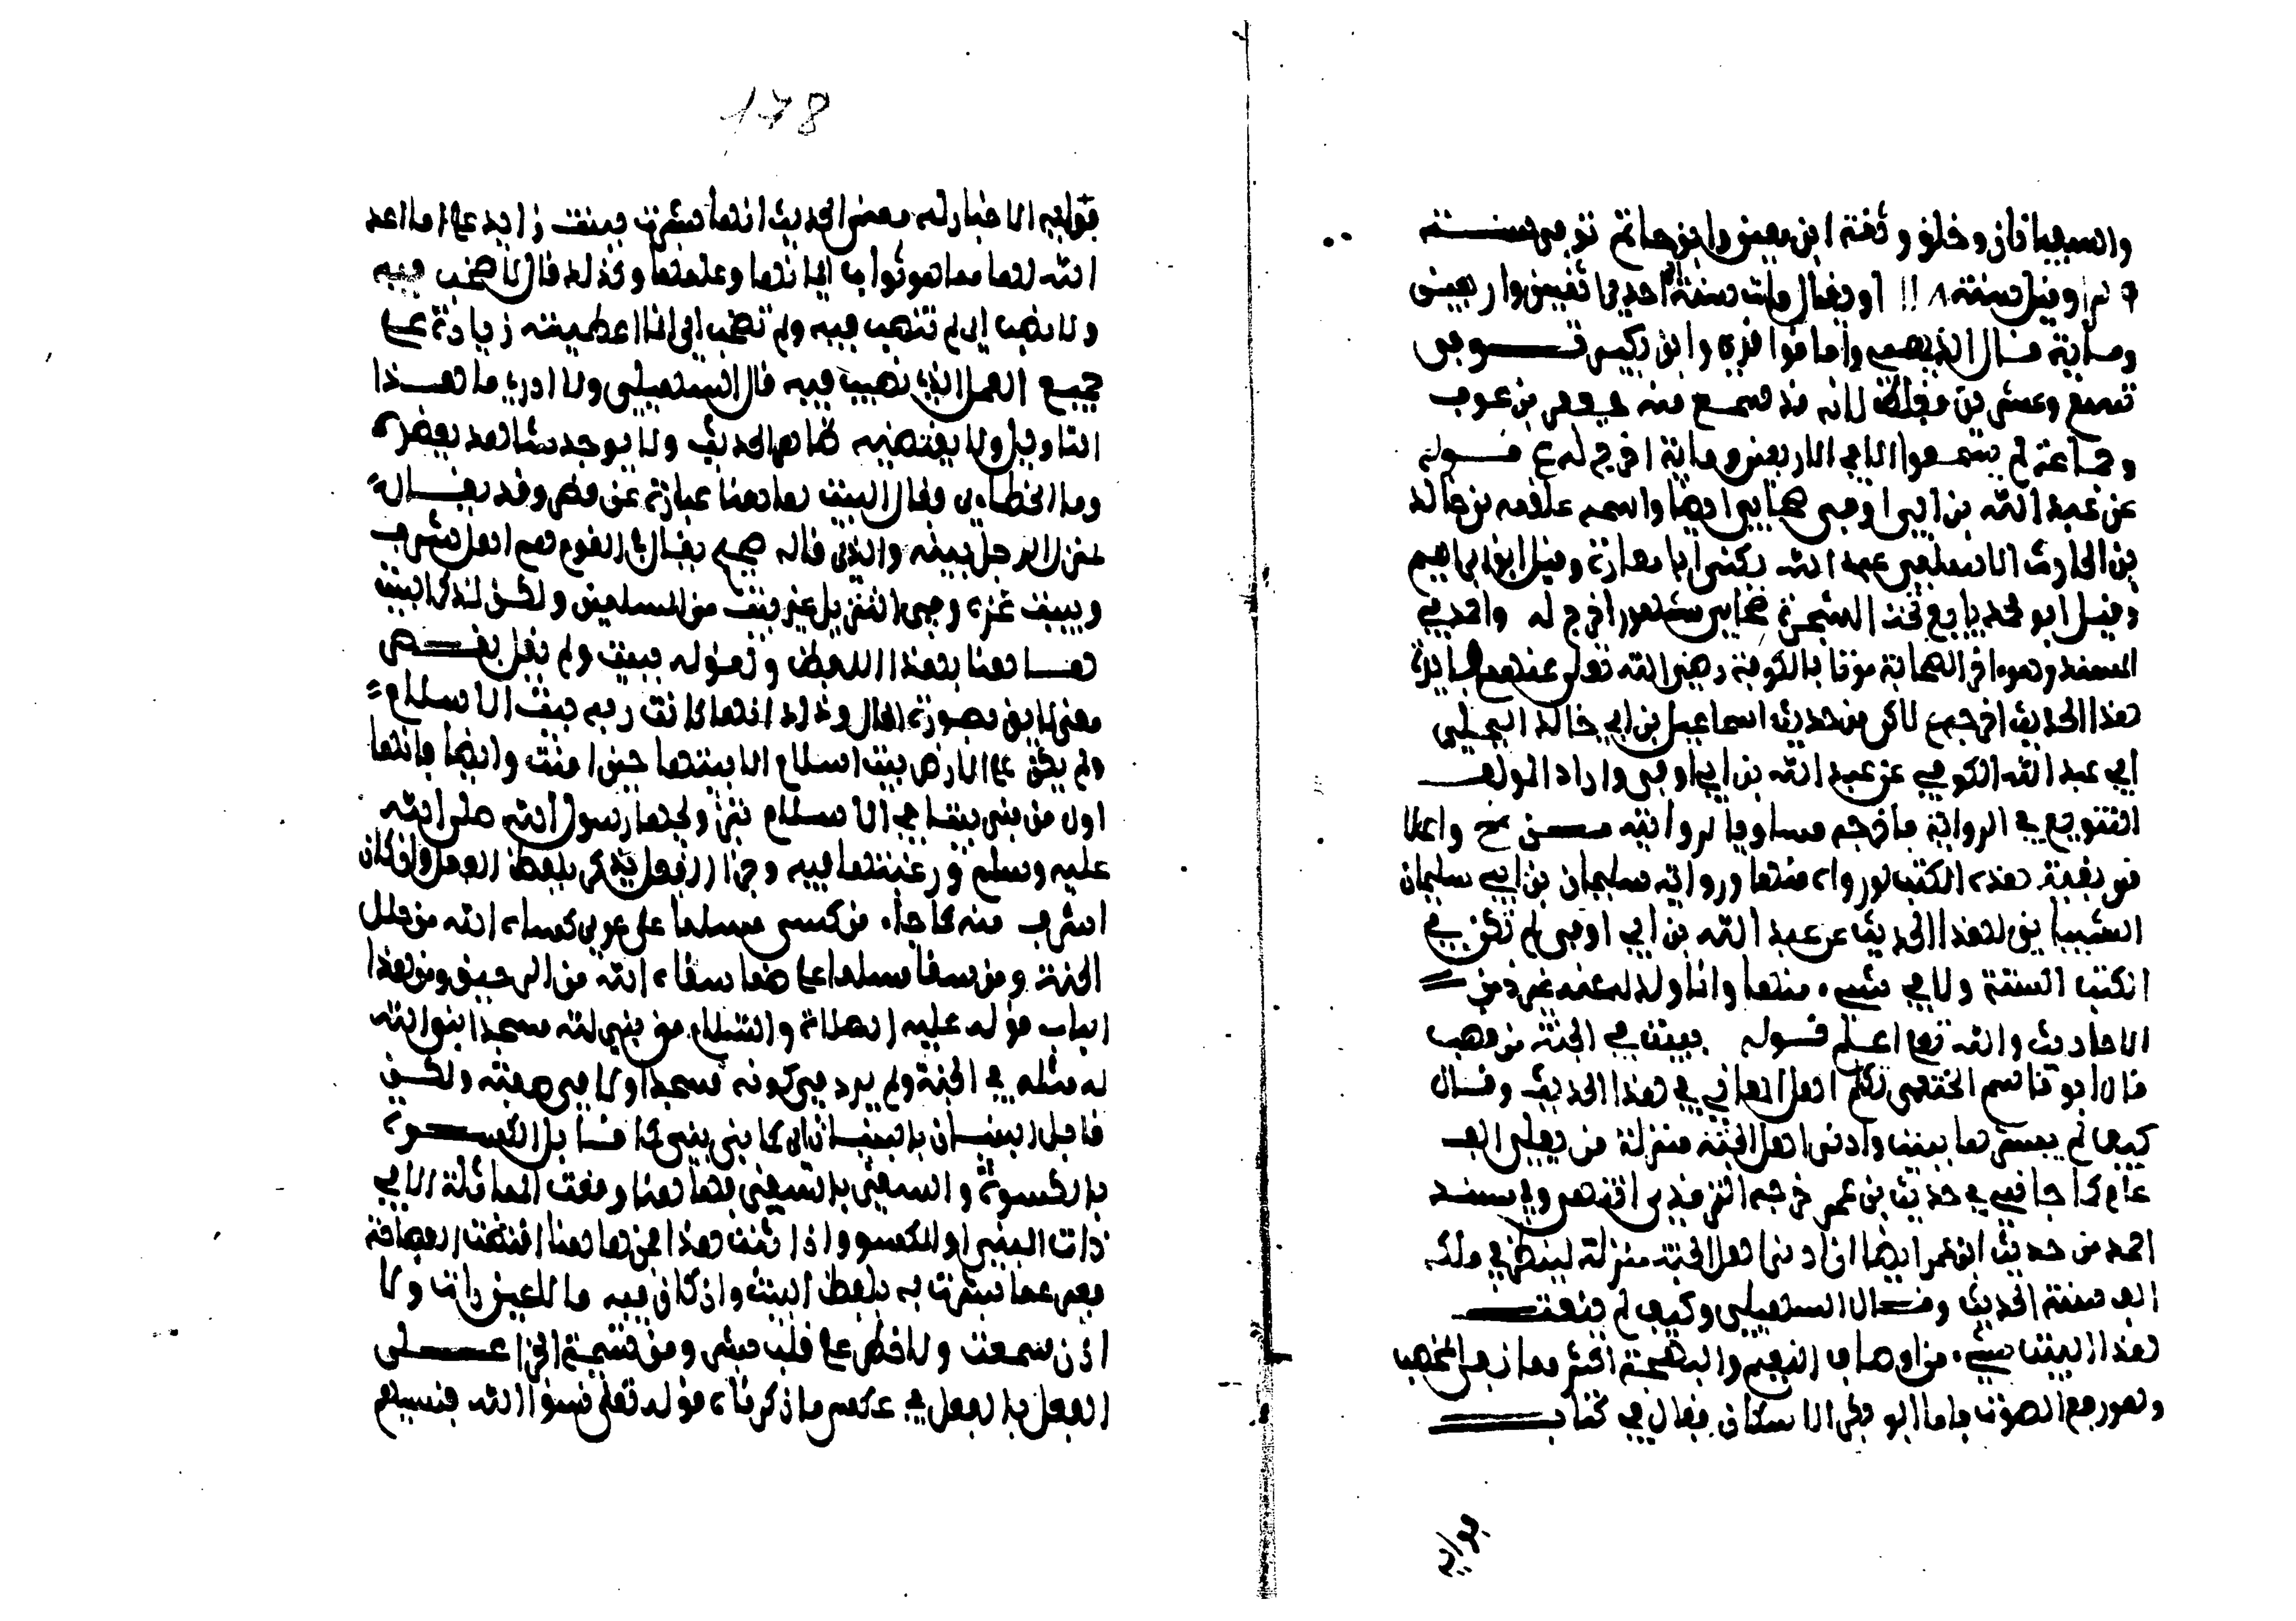 والسفيانان وخلق وثقه ابن معين وابو حاتم توفي سنة
وقيل سنة او يقال مات سنة احدى ثنتين واربعين
وماية قال الذهبي وابن ركين توفى
تسع وعشرين لانه قد سمع منه جعفر بن عوف
وجماعة لم يسمعوا الا في الاربعين وماية اخرج له ع قوله
عن عبد الله بن ابي اوفى صحابي ايضا واسمه علقمة بن خالد
بن الحارث الاسلمي عبد الله يكنى ابا معاوية وقيل ابو ابراهيم
وقيل ابو محمد بايع تحت الشجرة صحابي مشهور اخرج له واحمد في
المسند وهو اخر الصحابة موتا بالكوفة رضي الله تعالى عنهم
هذا الحديث اخرجه من حديث اسماعيل بن ابي خالد البجلي
ابي عبد الله الكوفي عن عبد الله بن ابي اوفى واراد المولف
التنويع في الرواية فاخرجه مساويا لروايته واعلا
من بقية هذه الكتب لو رواه منها ورواية سليمان بن ابي سليمان
الشيباني لهذا الحديث عن عبد الله بن ابي اوفى لم تكن في
الكتب الستة ولا في شيء منها وانا ولذلك من
الاحاديث والله تعالى اعلم قوله ببيت في الجنة من قصب
قال ابو قاسم الخثعمي تكلم اهل المعاني في هذا الحديث وقال
كيف لم يبشرها ببيت وادنى اهل الجنة منزلة من يعطى الف
عام كما جا في حديث بن عمر خرجه الترمذي انتهى وفي مسند
احمد من حديث ابن عمر ايضا ان ادنى اهل الجنة منزلة لينظر في ملكه
الف سنة الحديث وقال السهيلي وكيف لم تنعت
هذا البيت بشيء من اوصاف النعيم والبهجة اكثر من
وهو رفع الصوت فاما ابو بكر الاسكاف فقال في كتاب
فوايد
178
فوايد الاخبار له معنى الحديث انها بشرت ببيت زايد على ما اعد
الله لها مما هو ثواب ايمانها وعملها ولذلك قال لا صخب فيه
ولا نصب اي لم تنصب فيه ولم تصخب اي انما اعطيته زيادة على
جميع العمل الذي نصبت فيه قال السهيلي ولا ادري ما هذا
التاويل ولا يقتضيه ظاهر الحديث ولا يوجد شاهد يعضده
واما الخطابي فقال البيت هاهنا عبارة عن قصر وقد يقال
لمنزل الرجل بيته والذي قاله صحيح يقال في القوم هم اهل شرف
وبيت عز وفي التنزيل غير بيت من المسلمين ولكن لذكر البيت
هاهنا بهذا اللفظ ولقوله ببيت ولم يقل بقصر
معنى لايق بصورة الحال وذلك انها كانت ربة بيت الاسلام
ولم يكن على الارض بيت اسلام الا بيتها حين امنت وايضا فانها
اول من بنى بيتا في الاسلام بتزويجها رسول الله صلى الله
عليه وسلم ورغبتها فيه وجزا الفعل يذكر بلفظ الفعل وان كان
اشرف منه كما جاء من كسى مسلما على عري كساه الله من حلل
الجنة ومن سقا مسلما على ظما سقاه الله من الرحيق ومن هذا
الباب قوله عليه الصلاة والسلام من بنى لله مسجدا بنى الله
له مثله في الجنة ولم يرد في كونه مسجدا ولا في صفته ولكن
قابل البنيان بالبنيان اي كما بنى بني له كما قابل الكسوة
بالكسوة والسقي بالسقي فهاهنا وقعت المماثلة لا في
ذات المبنى او المكسو واذا ثبت هذا فمن هاهنا اقتضت الفصاحة
يعبر عما بشرت به بلفظ البيت وان كان فيه ما لا عين رات ولا
اذن سمعت ولا خطر على قلب بشر ومن تسمية الجزا على
الفعل بالفعل في عكس ما ذكرناه قوله تعالى نسوا الله فنسيهم